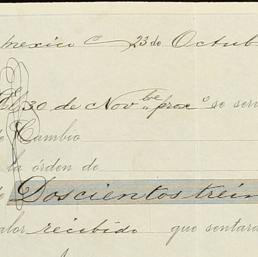 mexico 23 de Octub
El 30 de Nov.bre prox.o se serv
e Cambio
la órden de
Doscientos trein
alor recibido que sentará